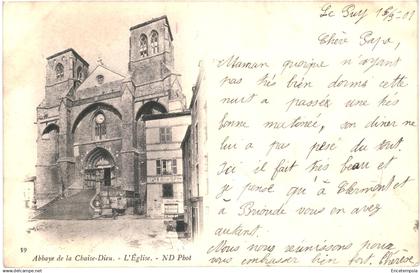 Le Puy 15/5-01
Chère Papa,
Maman quoique n'ayant
pas très bien dormi cette
nuit a passée une très
bonne matinée, son diner ne
lui a pas pesé du tout.
Ici il fait très beau et
je pense qu'à Clermont et
à Brioude vous en avez
autant.
Nous nous réunissons pour
vous embrasser bien fort. Thérèse
59
Abbaye de la Chaise-Dieu. - L'Église. - ND Phot